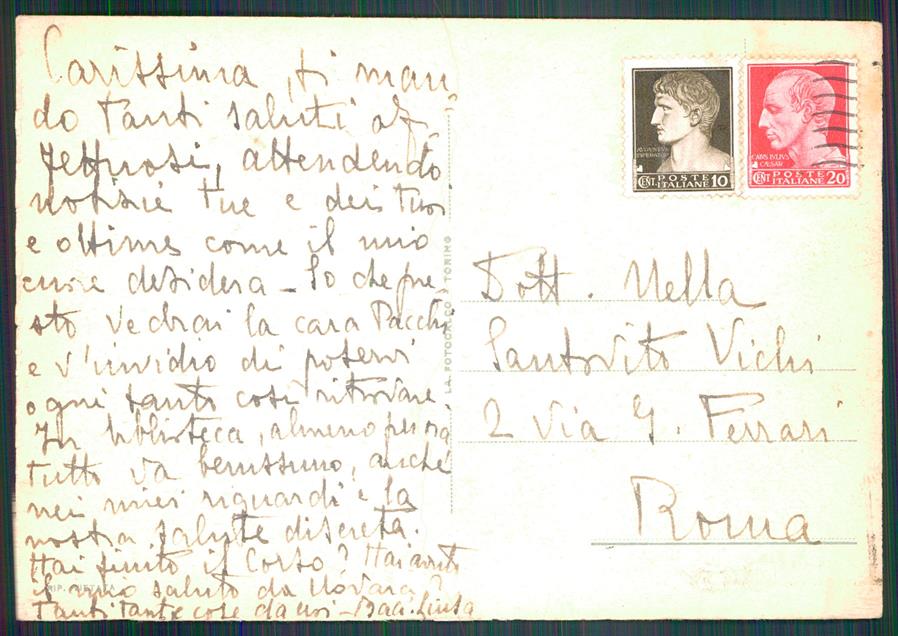 Carissima, ti man
do tanti saluti af
fettuosi, attendendo
notizie tue e dei tuoi
e ottime come il mio
cuore desidera - So che pre
sto vedrai la cara Pacchi
e v'invidio di potervi
ogni tanto così ritrovare.
In biblioteca, almeno per ora
tutto va benissimo, anche
nei miei riguardi e la
nostra salute discreta.
Hai finito il Corso? Hai avuto
il mio saluto da Novara?
Tante tante cose da noi - Baci.
LA FOTOCALCO - TORINO
AVGVSTVS
IMPERATOR
CENT. POSTE ITALIANE 10
CAIVS IVLIVS
CAESAR
CENT POSTE ITALIANE 20
Dott. Nella
Santovito Vichi
2 Via G. Ferrari
Roma
RIP. VIETATA